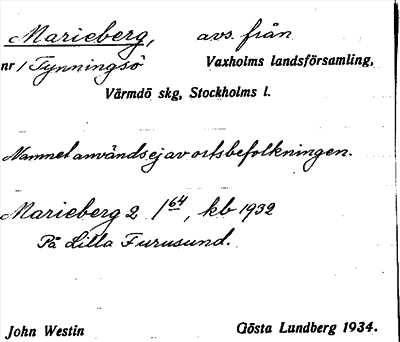 Marieberg, avs. från
nr 1 Tynningsö Vaxholms landsförsamling,
Värmdö skg, Stockholms l.
Namnet används ej av ortsbefolkningen.
Marieberg 2 1/64, kb 1932
På Lilla Furusund.
John Westin Gösta Lundberg 1934.